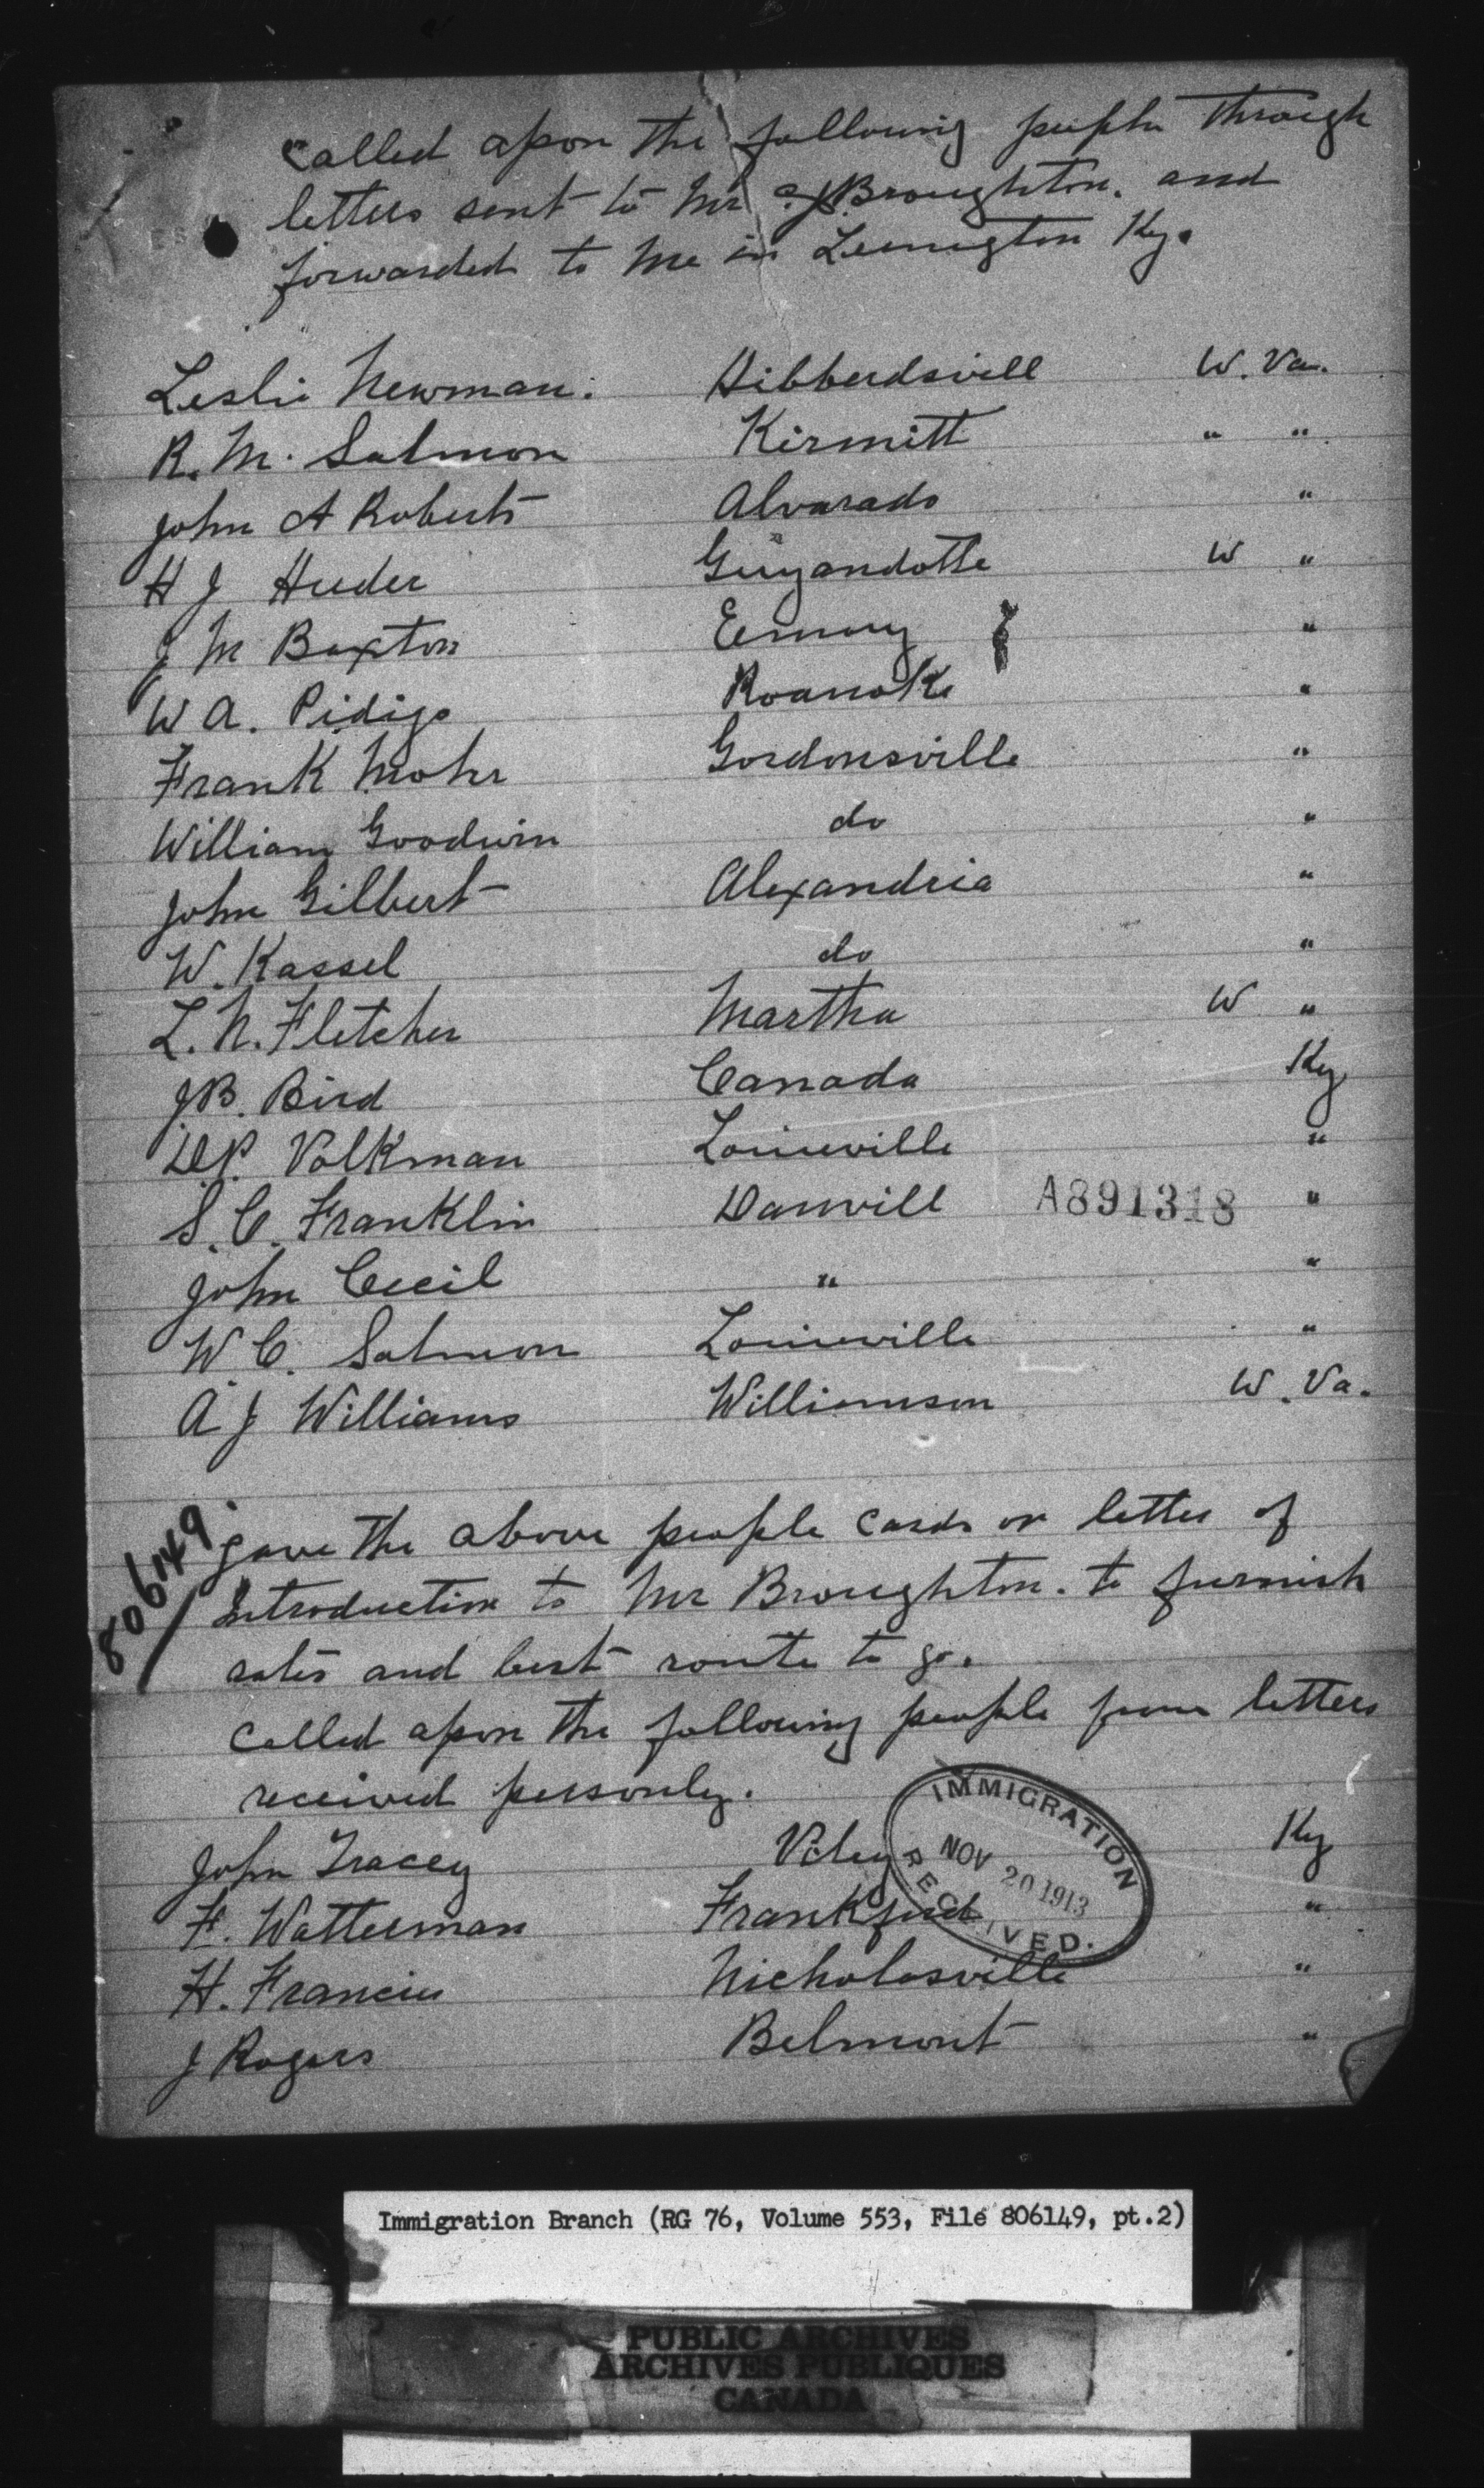 called apon the following people through
letters sent to Mr C.J. Broughton. and
forwarded to me in Lexington Ky.
Leslie Newman. Hibberdsvill W. Va.
R. M. Salmon Kirmitt " "
John A Roberts Alvarado "
H J Heeder Guyandotte W "
J M Boxton Emory "
W A. Pidigo Roanoke "
Frank Mohr Gordonsville "
William Goodwin do "
John Gilbert Alexandria "
W. Kassel do "
L. N. Fletcher Martha W "
J B. Bird Canada Ky
Volkman Louisville "
S. C. Franklin Danvill A891318 "
John Cecil " "
W C. Salmon Louisville "
A J Williams Williamson W. Va.
gave the above people cards or letter of
Introduction to Mr Broughton. to furnish
rates and best route to go.
806149
called apon the following people from letters
received personly.
John Tracey Viley Ky
F. Watterman Frankford "
H. Francis Nicholasville "
J Rogers Belmont "
IMMIGRATION
NOV 20 1913
RECEIVED.
Immigration Branch (RG 76, Volume 553, File 806149, pt.2)
PUBLIC ARCHIVES
ARCHIVES PUBLIQUES
CANADA